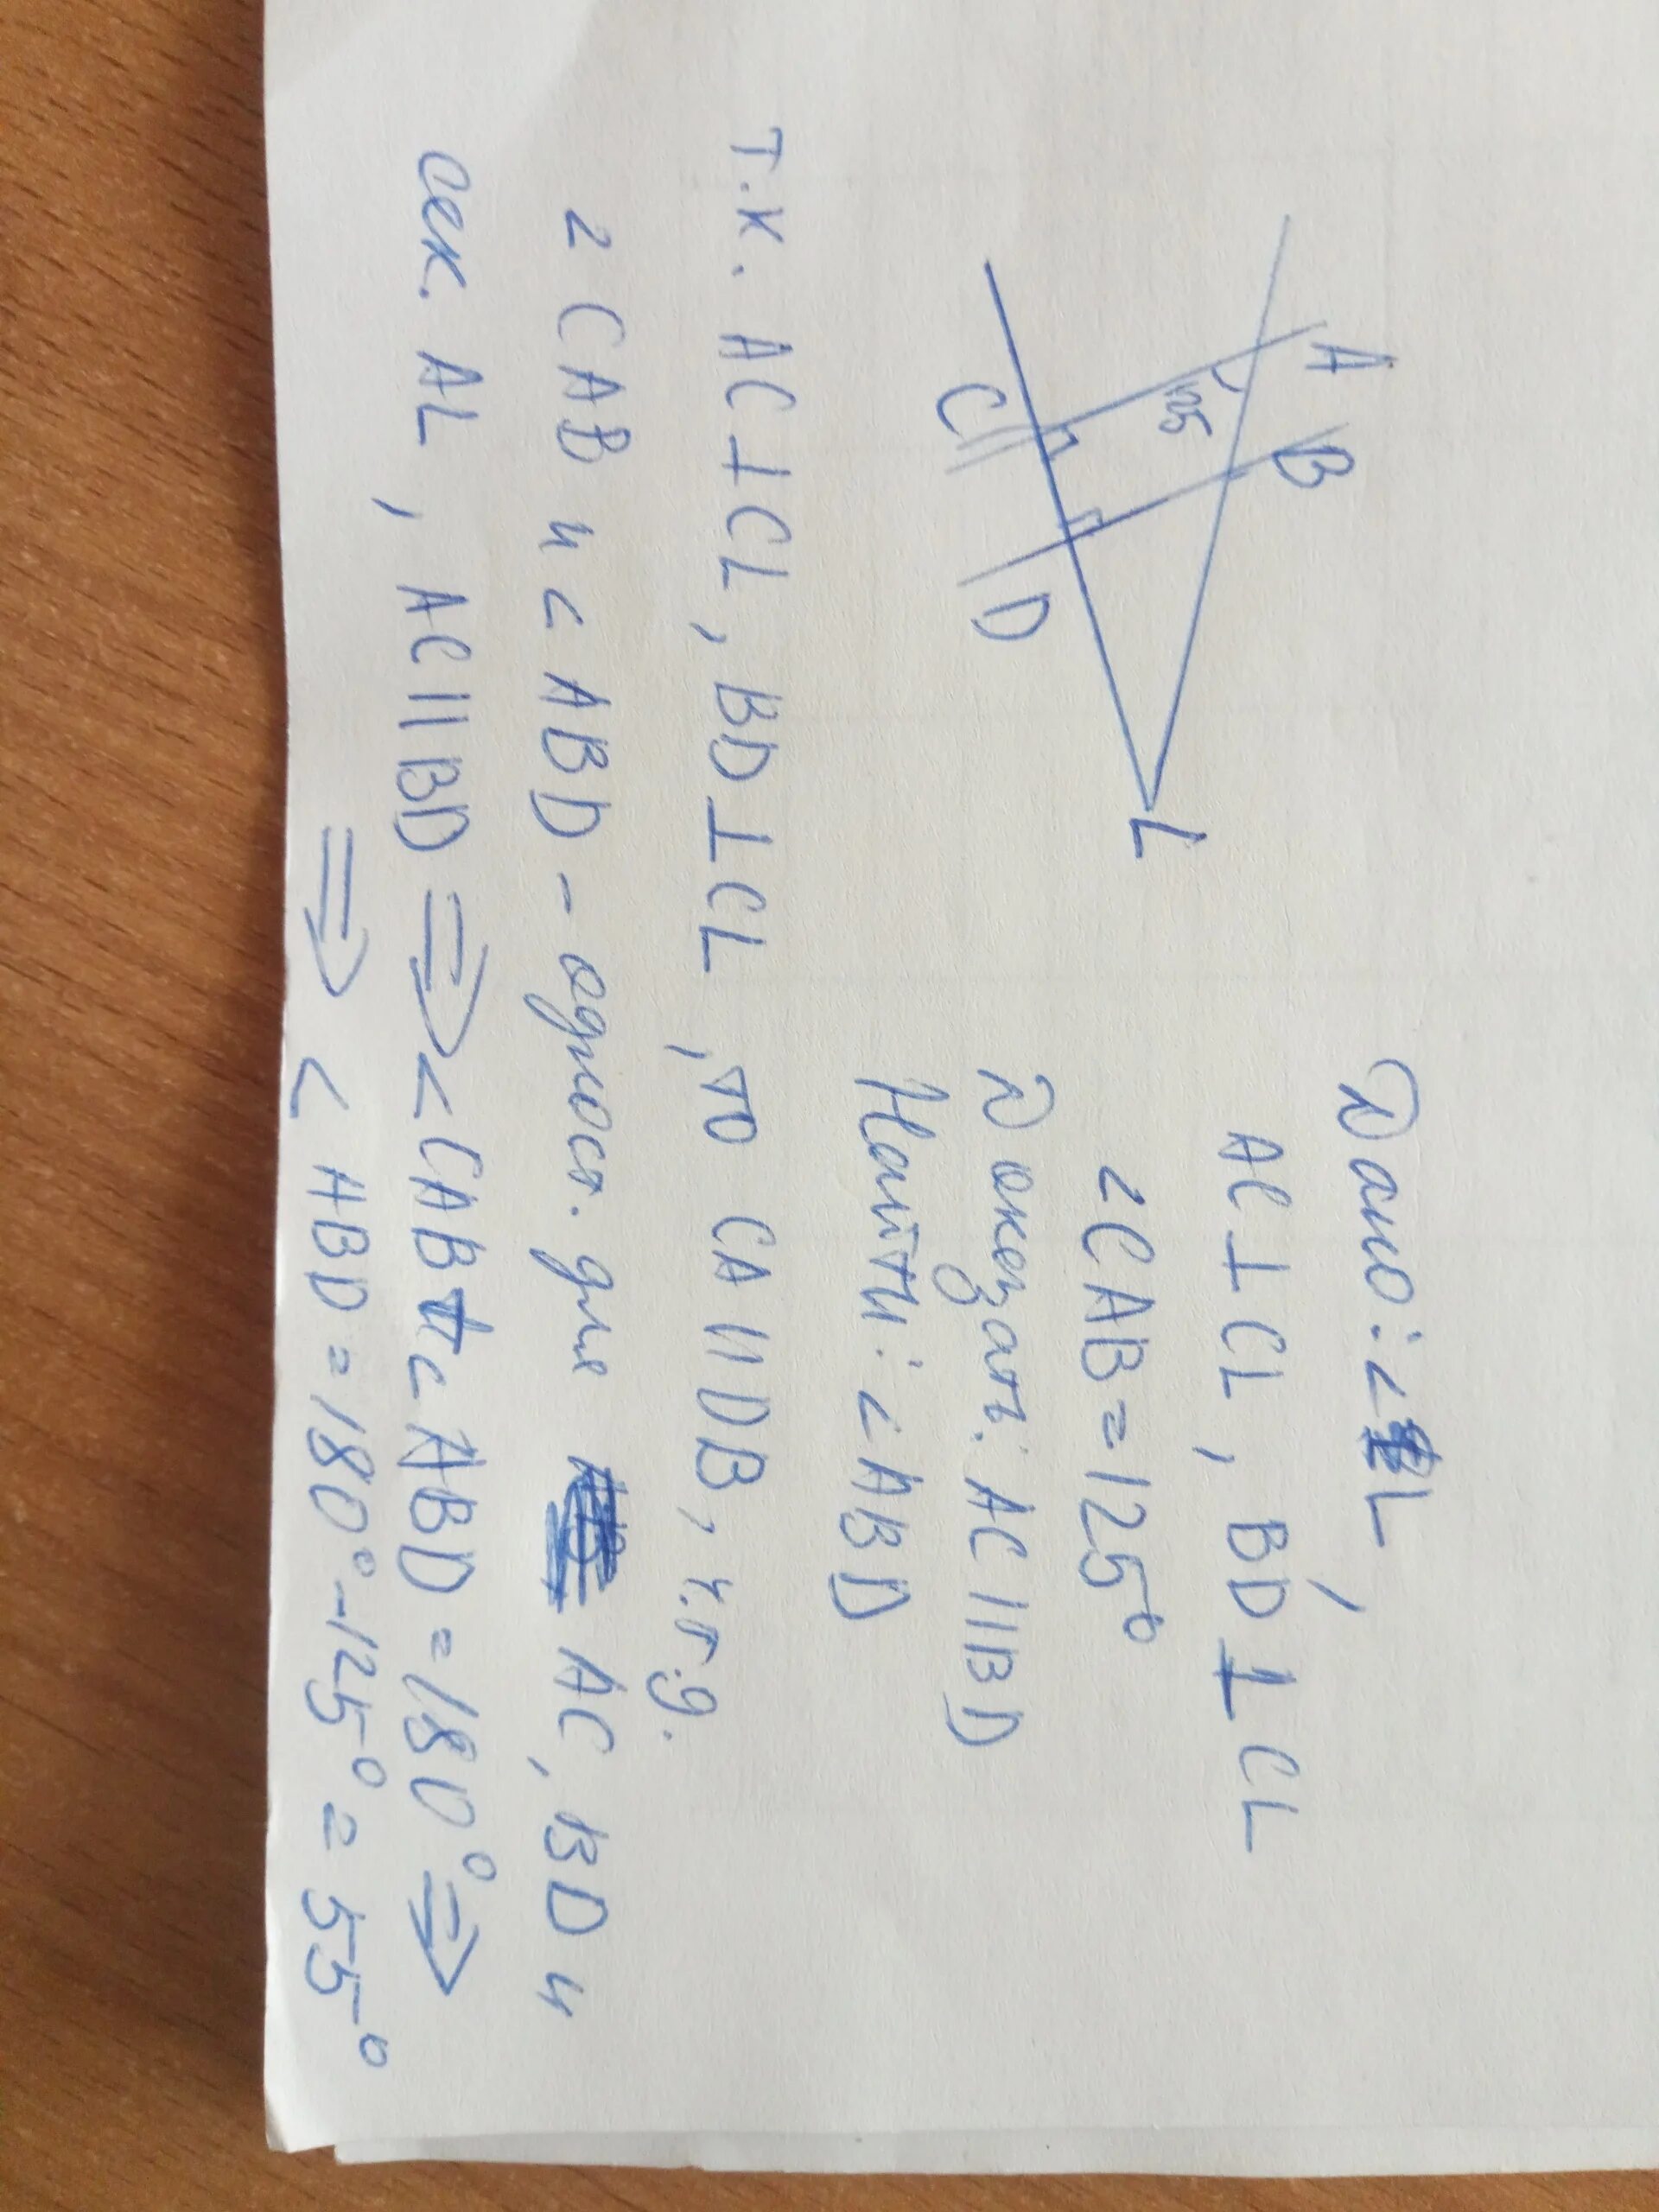 A
B
125
C
D
L
Дано: ∠L,
AC⊥CL, BD⊥CL
∠CAB=125°
Доказать: AC||BD
Найти: ∠ABD
т.к. AC⊥CL, BD⊥CL, то CA||DB, ч.т.д.
∠CAB и ∠ABD - одност. для AC, BD и
сек. AL, AC||BD ⇒ ∠CAB+∠ABD=180° ⇒
⇒ ∠ABD=180°-125°=55°